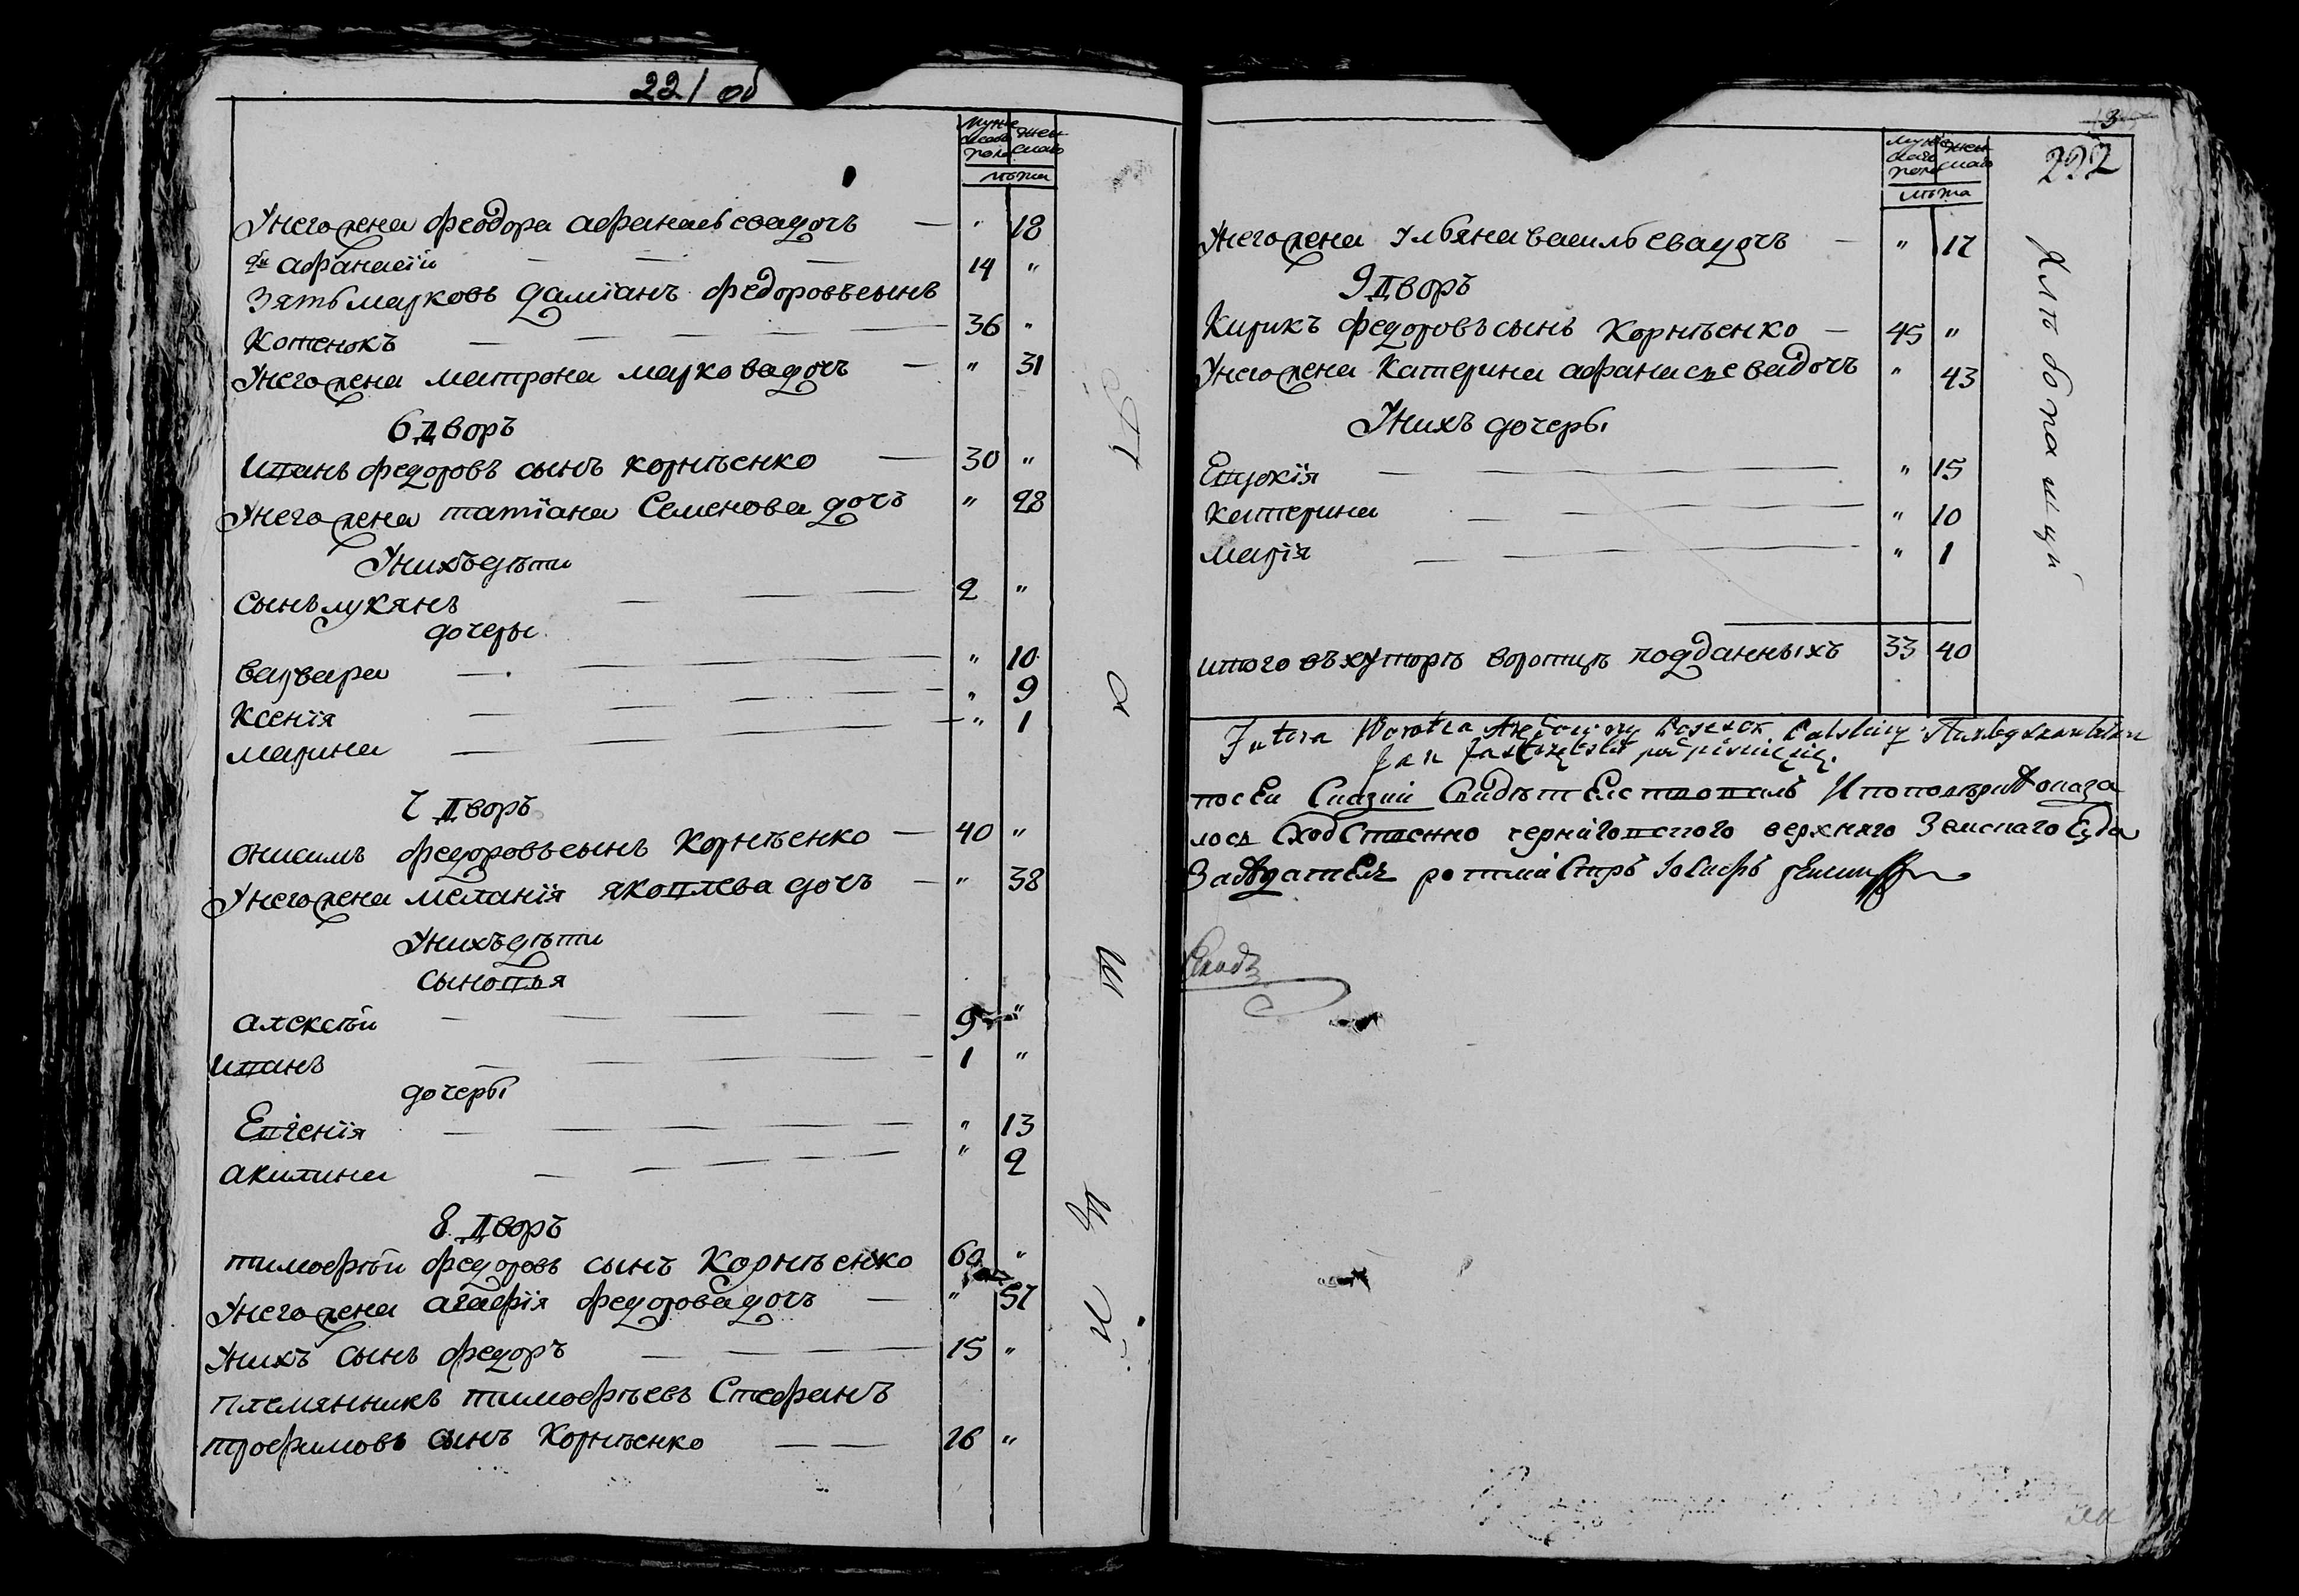 221 об
Мужескаго пола
женскаго
лѣта
Унего жена феодора афанасьева дочь — " 18
афанасій — 14 "
Зять марковъ даміанъ федоровъ сынъ
Котенокъ — 36 "
Унего жена матрона маркова дочь — " 31
6 дворъ
Иванъ федоровъ сынъ корнѣенко — 30 "
Унего жена татіана Семенова дочь " 28
Унихъ дѣти
Сынъ лукянъ — 2 "
дочеры
варвара — " 10
Ксенія — " 9
марина — " 1
7 дворъ
Онисимъ федоровъ сынъ Корнѣенко — 40 "
Унего жена меланія яковлева дочь — " 38
Унихъ дѣти
сыновья
алексѣй — 9 "
Иванъ — 1 "
дочеры
Евгенія — " 13
акилина — " 2
8 дворъ
тимофѣй федоровъ сынъ Корнѣенко 60 "
Унего жена агафія федорова дочь — " 57
Унихъ сынъ федоръ — 15 "
племянникъ тимофѣевъ Стефанъ
трофимовъ сынъ Корнѣенко — 26 "
3
222
Мужескаго пола
женскаго
лѣта
Унего жена Ульяна васильева дочь — " 17
9 дворъ
Кирикъ федоровъ сынъ Корнѣенко — 45 "
Унего жена Катерина афанасьева дочь " 43
Унихъ дочеры
Евдокія — " 15
Катерина — " 10
марія — " 1
итого въ хуторѣ воротцѣ подданныхъ 33 40
Jan
по сей Сказки Свидѣтелствовалъ И по повѣрки оказа
лось Сходственно чернѣговского верхняго Земскаго Суда
Засѣдатель ротмистръ Іосифъ